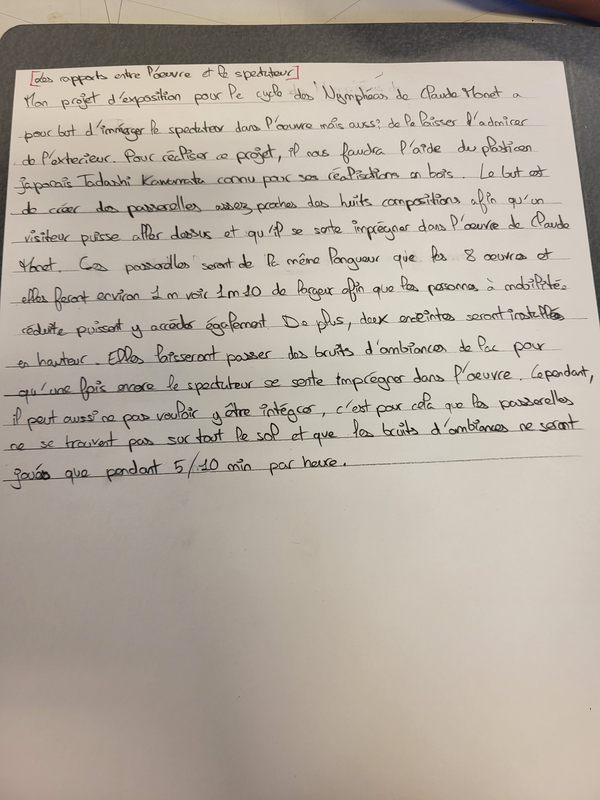 [des rapports entre l'oeuvre et le spectateur]
Mon projet d'exposition pour le cycle des Nymphéas de Claude Monet a
pour but d'immerger le spectateur dans l'oeuvre mais aussi de le laisser l'admirer
de l'exterieur. Pour réaliser ce projet, il nous faudra l'aide du plasticien
japonais Tadashi Kawamata connu pour ses réalisations en bois. Le but est
de créer des passerelles assez proches des huits compositions afin qu'un
visiteur puisse aller dessus et qu'il se sente imprégner dans l'oeuvre de Claude
Monet. Ces passerelles seront de la même longueur que les 8 oeuvres et
elles feront environ 1m voir 1m10 de largeur afin que les personnes à mobilité-
réduite puissent y accéder également. De plus, deux enceintes seront installées
en hauteur. Elles laisseront passer des bruits d'ambiances de lac pour
qu'une fois encore le spectateur se sente imprégner dans l'oeuvre. Cependant,
il peut aussi ne pas vouloir y être intégrer, c'est pour cela que les passerelles
ne se trouvent pas sur tout le sol et que les bruits d'ambiances ne seront
joués que pendant 5/10 min par heure.